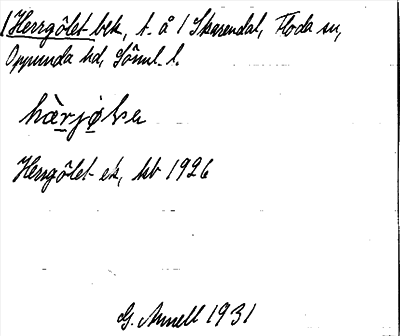 /Herrgölet bek, t. å 1 Skarendal, Floda sn,
Oppunda hd, Söml. l.
hæ̀rjø̱lsə
Herrgölet ek, kb 1926
G. Annell 1931